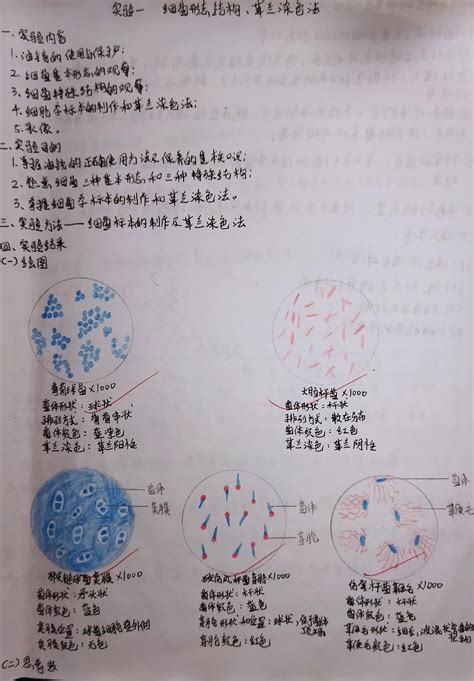 实验一 细菌形态结构、革兰染色法
一、实验内容
1.油镜的使用与保护;
2.细菌基本形态的观察;
3.细菌特殊结构的观察;
4.细菌标本的制作和革兰染色法;
5.录像。
二、实验目的
1.掌握油镜的正确使用方法及保养的基本知识;
2.熟悉细菌三种基本形态和三种特殊结构;
3.掌握细菌标本的制作和革兰染色法。
三、实验方法——细菌标本的制作及革兰染色法
四、实验结果
(一)绘图
葡萄球菌×1000
菌体形状:球状
排列方式:葡萄串状
菌体颜色:蓝紫色
革兰染色:革兰阳性
大肠杆菌×1000
菌体形状:杆状
排列方式:散在分布
菌体颜色:红色
革兰染色:革兰阴性
菌体
荚膜
肺炎链球菌荚膜×1000
菌体形状:矛头状
菌体颜色:蓝色
荚膜位置:
荚膜颜色:无色
菌体
芽胞
破伤风杆菌芽胞×1000
菌体形状:杆状
菌体颜色:蓝色
芽胞形状和位置:球状,位于菌体
芽胞颜色:红色
菌体
鞭毛
伤寒杆菌鞭毛×1000
菌体形状:杆状
菌体颜色:蓝色
鞭毛形状:细长,波浪状
鞭毛颜色:红色
(二)思考题